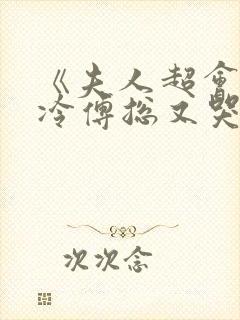 《夫人超会
冷傅总又哭
次次念